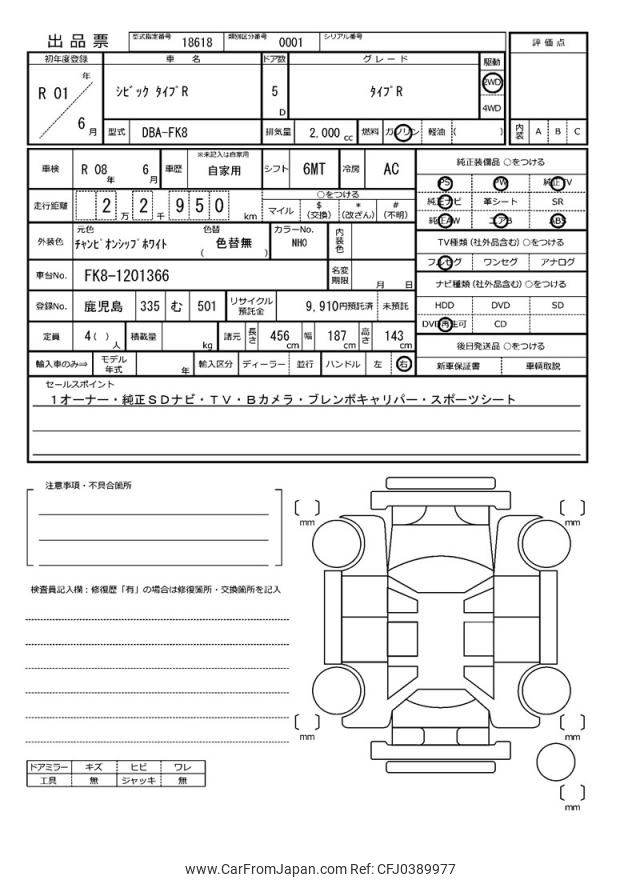 出品票 型式指定番号 18618 類別区分番号 0001 シリアル番号
評価点
初年度登録 車名 ドア数 グレード 駆動
R 01 年 6 月 シビック タイプR 5 D タイプR 2WD 4WD
型式 DBA-FK8 排気量 2,000 cc 燃料 ガソリン 軽油 ( )
内装 A B C
車検 R 08 年 6 月 車歴 ※未記入は自家用 自家用 シフト 6MT 冷房 AC
純正装備品 ○をつける
PS PW 純正TV
純正ナビ 革シート SR
純正AW エアB ABS
走行距離 2 2 万 千 9 5 0 km ○をつける
マイル $ (交換) * (改ざん) # (不明)
外装色 元色 チャンピオンシップホワイト 色替 ( 色替無 ) カラーNo. NH0 内装色
TV種類 (社外品含む) ○をつける
フルセグ ワンセグ アナログ
車台No. FK8-1201366 名変期限 月 日
ナビ種類 (社外品含む) ○をつける
HDD DVD SD
DVD再生可 CD
登録No. 鹿児島 335 む 501 リサイクル預託金 9,910円預託済 未預託
定員 4( ) 人 積載量 kg 諸元 長さ 456 cm 幅 187 cm 高さ 143 cm
後日発送品 ○をつける
新車保証書 車輌取説
輸入車のみ⇒ モデル年式 年 輸入区分 ディーラー 並行 ハンドル 左 右
セールスポイント
1オーナー・純正SDナビ・TV・Bカメラ・ブレンボキャリパー・スポーツシート
注意事項・不具合箇所
検査員記入欄:修復歴「有」の場合は修復箇所・交換箇所を記入
mm
mm
mm
mm
mm
ドアミラー キズ ヒビ ワレ
工具 無 ジャッキ 無
www.CarFromJapan.com Ref: CFJ0389977